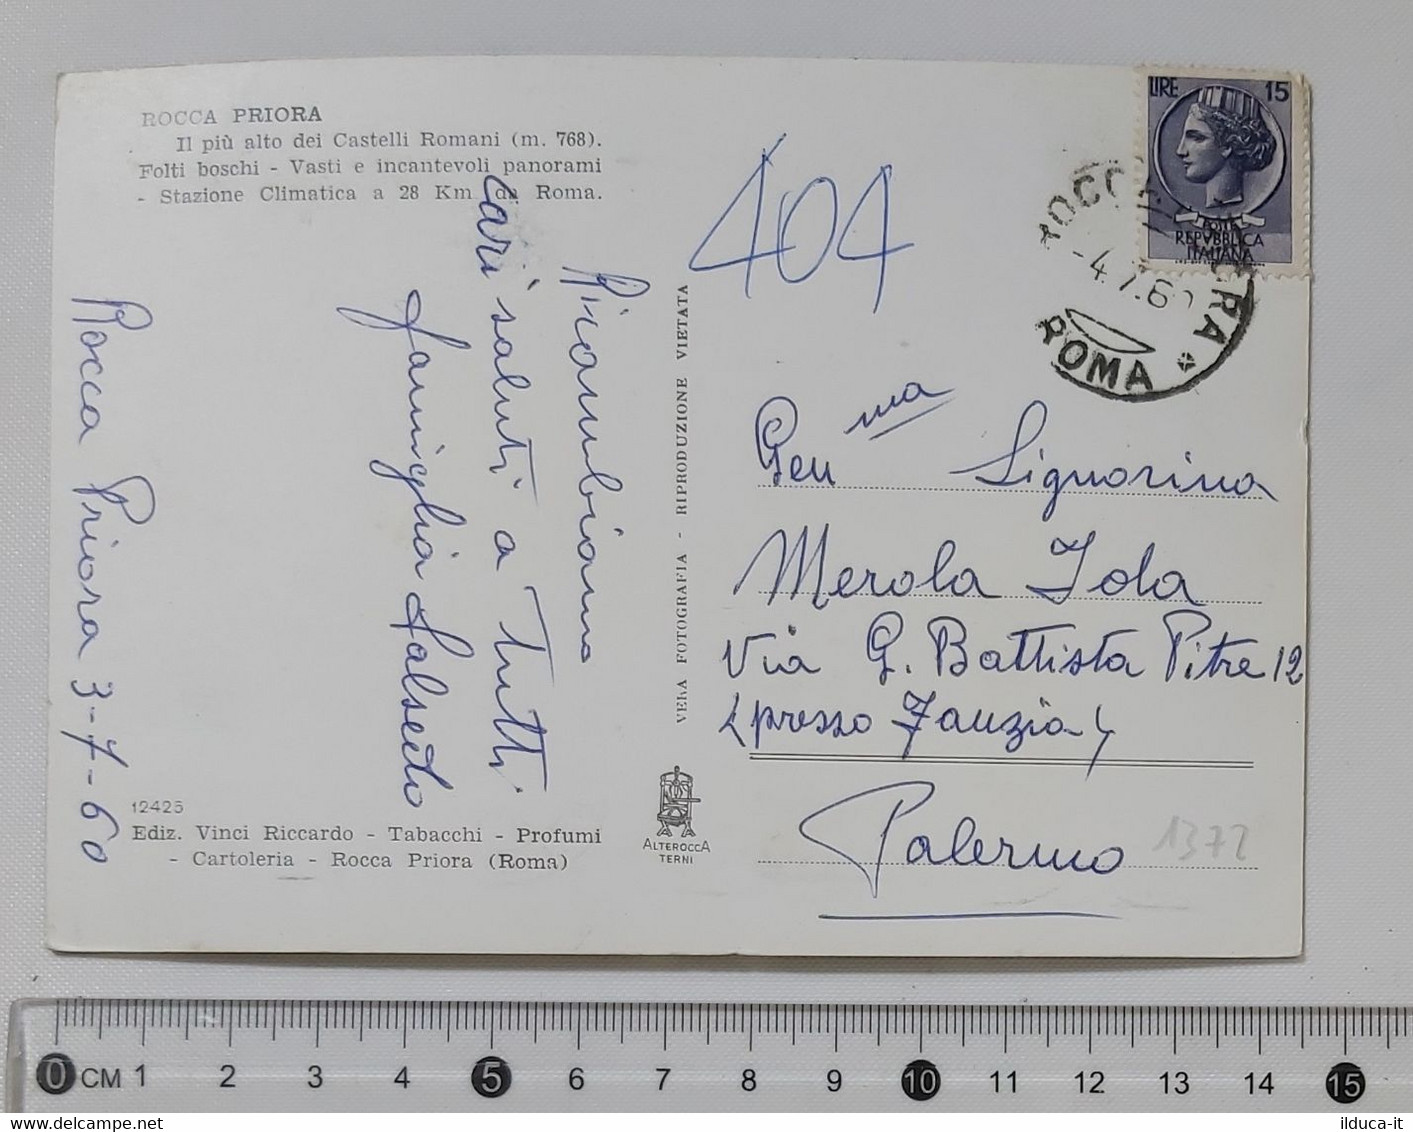 ROCCA PRIORA
Il più alto dei Castelli Romani (m. 768).
Folti boschi - Vasti e incantevoli panorami
- Stazione Climatica a 28 Km da Roma.
Ricambiamo
cari saluti a Tutti
famiglia Salsedo
Rocca Priora 3-7-60
12425
Ediz. Vinci Riccardo - Tabacchi - Profumi
- Cartoleria - Rocca Priora (Roma)
VERA FOTOGRAFIA - RIPRODUZIONE VIETATA
ALTEROCCA
TERNI
404
LIRE 15
POSTE
REPVBBLICA
ITALIANA
ROCCA PRIORA
-4.7.60
ROMA
Gen ma Signorina
Merola Jola
Via G. Battista Pitre 12
(presso Fauzia)
Palermo
1372
0 CM 1 2 3 4 5 6 7 8 9 10 11 12 13 14 15
ilduca-it